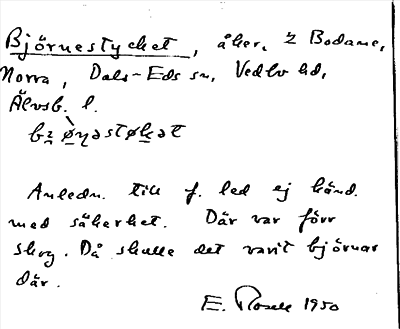 Björnestycket, åker, 2 Bodane,
Norra, Dals-Eds sn, Vedbo hd,
Älvsb. l.
bz̠ø̠̀ŋəstøk̠ət
Anledn. till f. led ej känd.
med säkerhet. Där var förr
skog. Då skulle det varit björnar
där.
E. Rosell 1950